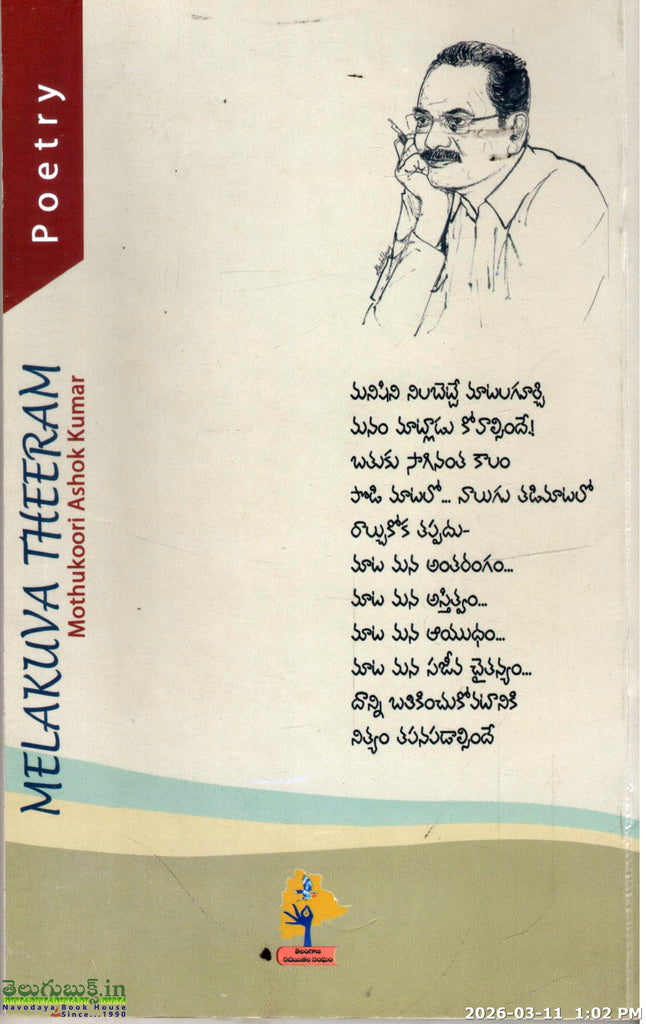 Poetry
MELAKUVA THEERAM
Mothukoori Ashok Kumar
మనిషిని నిలబెట్టే మాటలగూర్చి
మనం మాట్లాడు కోవాల్సిందే!
బతుకు సాగినంత కాలం
పొడి మాటలో... నాలుగు తడిమాటలో
రాల్చుకోక తప్పదు-
మాట మన అంతరంగం...
మాట మన అస్తిత్వం...
మాట మన ఆయుధం...
మాట మన సజీవ చైతన్యం...
దాన్ని బతికించుకోవటానికి
నిత్యం తపనపడాల్సిందే
తెలంగాణ
రచయితల సంఘం
తెలుగుబుక్స్.in
Navodaya Book House
Since...1990
2026-03-11 1:02 PM